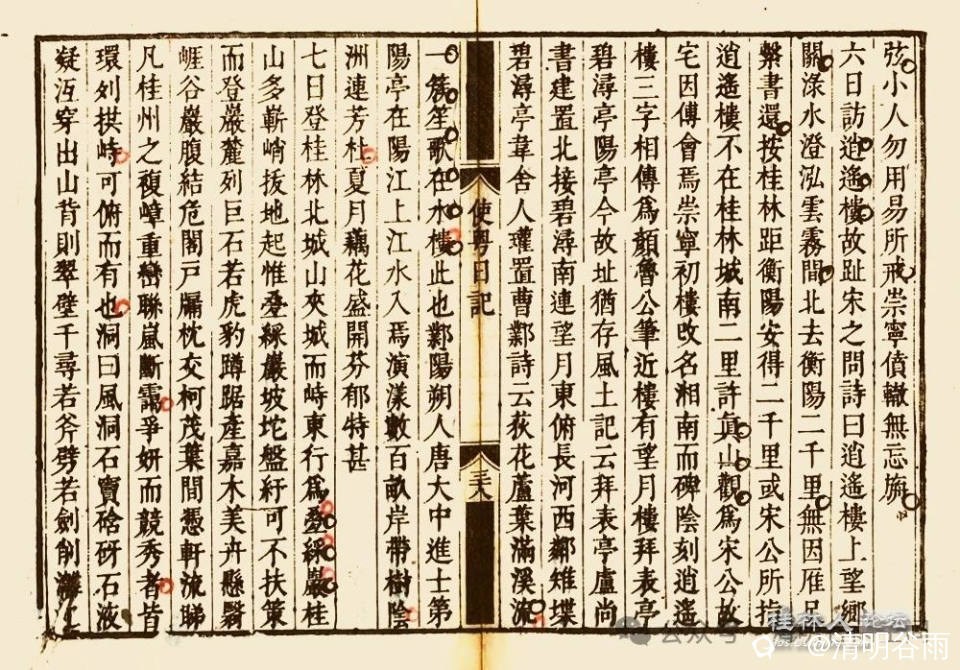 弦小人勿用易所戒崇寧債轍無忘旃
六日訪逍遙樓故趾宋之問詩曰逍遙樓上望鄉
關淥水澄泓雲霧間北去衡陽二千里無因雁足
繫書還按桂林距衡陽安得二千里或宋公所指
逍遙樓不在桂林城南二里許眞山觀爲宋公故
宅因傅會焉崇寧初樓改名湘南而碑陰刻逍遙
樓三字相傳爲顏魯公筆近樓有望月樓拜表亭
碧潯亭陽亭今故址猶存風土記云拜表亭盧尚
書建置北接碧潯南連望月東俯長河西鄰雉堞
碧潯亭韋舍人瓘置曹鄴詩云荻花蘆葉滿溪流
使粤日記
三十八
一簇笙歌在水樓此也鄴陽朔人唐大中進士第
陽亭在陽江上江水入焉演漾數百畝岸帶樹陰
洲連芳杜夏月藕花盛開芬郁特甚
七日登桂林北城山夾城而峙東行爲疊綵巖桂
山多嶄峭拔地起惟疊綵巖坡坨盤紆可不扶策
而登巖麓列巨石若虎豹蹲踞產嘉木美卉懸翳
崕谷巖腹結危閣戶牖枕交柯茂葉間憑軒流睇
凡桂州之複嶂重巒聯嵐斷靄爭妍而競秀者皆
環列拱峙可俯而有也洞曰風洞石竇硌砑石液
疑冱穿出山背則翠壁千尋若斧劈若劍削灕
公众号
桂林人论坛
@清明谷雨